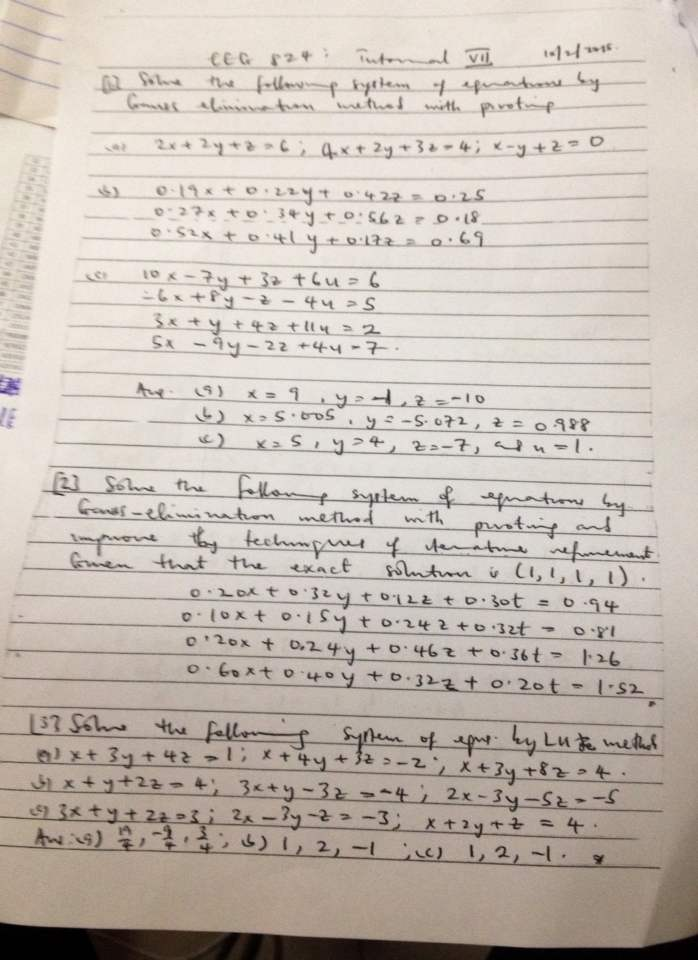 CEG 824: Tutorial VII 10/2/2015.
[1] Solve the following system of equations by
Gauss elimination method with pivoting
(a) 2x + 2y + z = 6 ; 4x + 2y + 3z = 4 ; x - y + z = 0
(b) 0.19x + 0.22y + 0.42z = 0.25
0.27x + 0.34y + 0.56z = 0.18
0.52x + 0.41y + 0.17z = 0.69
(c) 10x - 7y + 3z + 6u = 6
-6x + 8y - z - 4u = 5
3x + y + 4z + 11u = 2
5x - 9y - 2z + 4u = 7.
Ans. (a) x = 9 , y = -1 , z = -10
(b) x = 5.005 , y = -5.072 , z = 0.988
(c) x = 5 , y = 4 , z = -7, and u = 1.
[2] Solve the following system of equations by
Gauss-elimination method with pivoting and
improve by techniques of iterative refinement.
Given that the exact solution is (1, 1, 1, 1).
0.20x + 0.32y + 0.12z + 0.30t = 0.94
0.10x + 0.15y + 0.24z + 0.32t = 0.81
0.20x + 0.24y + 0.46z + 0.36t = 1.26
0.60x + 0.40y + 0.32z + 0.20t = 1.52.
[3] Solve the following system of eqns. by LU method
(a) x + 3y + 4z = 1 ; x + 4y + 3z = -2 ; x + 3y + 8z = 4 .
(b) x + y + 2z = 4 ; 3x + y - 3z = -4 ; 2x - 3y - 5z = -5
(c) 3x + y + 2z = 3 ; 2x - 3y - z = -3 ; x + 2y + z = 4 .
Ans: (a) 19/4, -9/4, 3/4 ; (b) 1, 2, -1 ; (c) 1, 2, -1 .